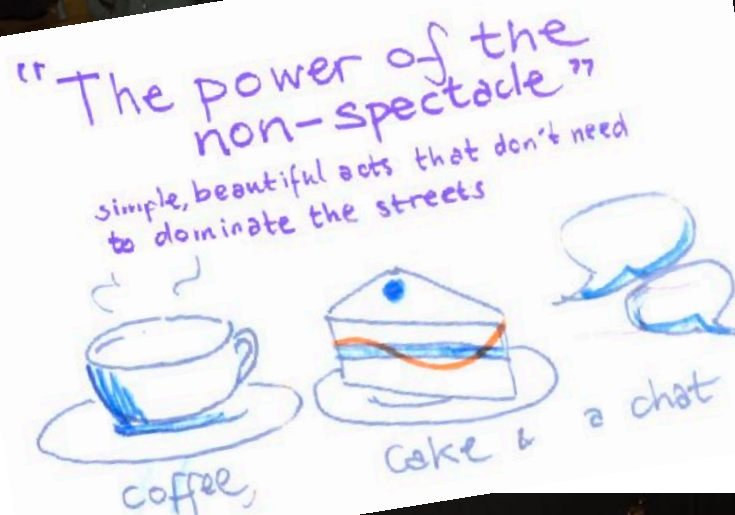 "The power of the
non-spectacle"
simple, beautiful acts that don't need
to dominate the streets
coffee,
cake & a chat